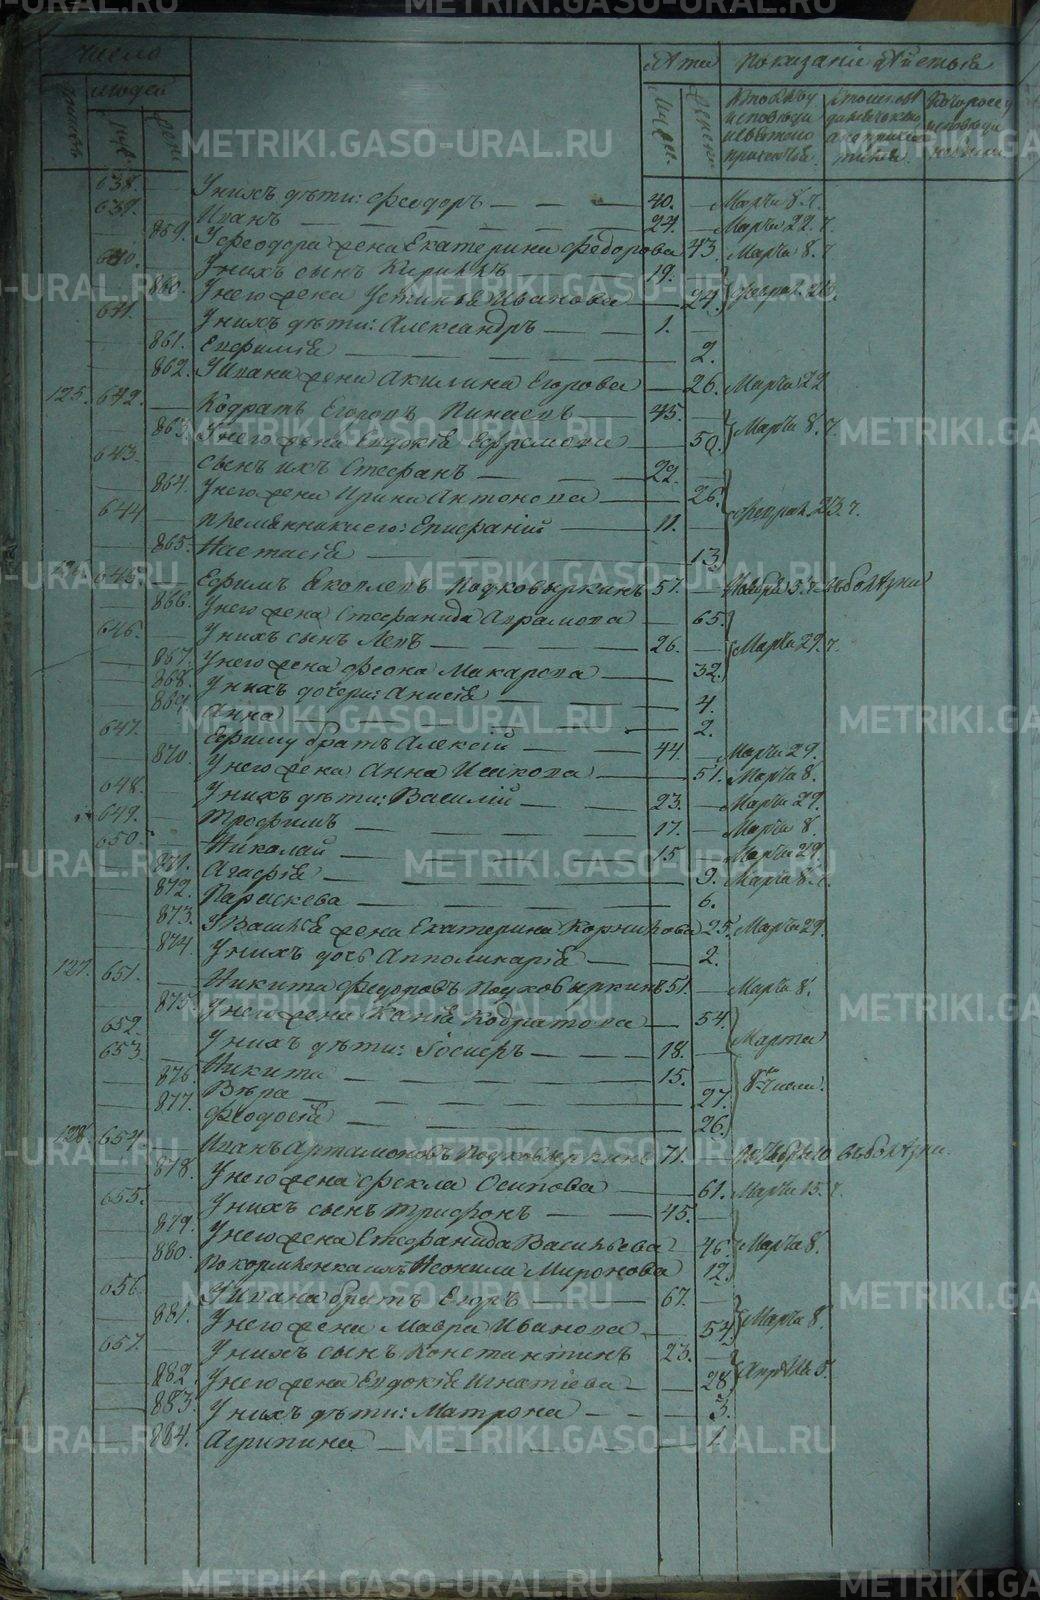 Число Лѣта Показаніе дѣйства
людей
638. У нихъ дѣти: Феодоръ 40. Марта 8. г.
639. Иванъ 24. Марта 22. г.
859. У Феодора жена Екатерина Федорова 43. Марта 8. г.
640. У нихъ сынъ Кирилъ 19.
860. У него жена Устинья Иванова 24.
641. У нихъ дѣти: Александръ 1.
861. Евфимія 2.
862. У Ивана жена Акилина Егорова 26. Марта 22
125. 642. Кодратъ Егоровъ 45.
863. У него жена Евдокія Ефремова 50. Марта 8. г.
643. сынъ ихъ Стефанъ 22.
864. У него жена Ирина Антонова 26.
644 племянники его: Епифаній 11. Феврал. 23. г.
865. Настасія 13
645. Ефимъ Яковлевъ Подковыркинъ 51. болѣзни
866. У него жена Стефанида Аврамова 65.
646. У нихъ сынъ Левъ 26. Марта 29. г.
867. У него жена Феона Макарова 32.
868. У нихъ дочери: Анисія 4.
869. Анна 2.
647. Ефиму братъ Алексій 44. Марта 29.
870. У него жена Анна Исакова 51. Марта 8.
648. У нихъ дѣти: Василій 23. Марта 29.
649. Трофимъ 17. Марта 8.
650. Николай 15 Марта 29
871. Агафія 9. Марта 8. г.
872. Параскева 6.
873. У Василья жена Екатерина Корнилова 25. Марта 29.
874 У нихъ дочь Апполинарія 2.
127. 651. Никита Федоровъ Подковыркинъ 51. Марта 8.
875. У него жена Кодратова 54.
652. У нихъ дѣти: Іосифъ 18. Марта
653. Никита 15.
876. Вѣра 27. 8го числа.
877. Феодосія 26.
128. 654. Иванъ Артамоновъ Подковыркинъ 71. болѣзни.
878. У него жена Фекла Осипова 61. Марта 15. г.
655. У нихъ сынъ Трифонъ 45.
879. У него жена Стефанида Васильева 46. Марта 8.
880. Неонила Миронова 12.
656. У Ивана братъ Егоръ 67.
881. У него жена Мавра Иванова 54. Марта 8.
657. У нихъ сынъ Константинъ 23.
882. У него жена Евдокія Игнатіева 28. Апрѣля 5.
883. У нихъ дѣти: Матрона 3.
884. Агрипина 1.
METRIKI.GASO-URAL.RU